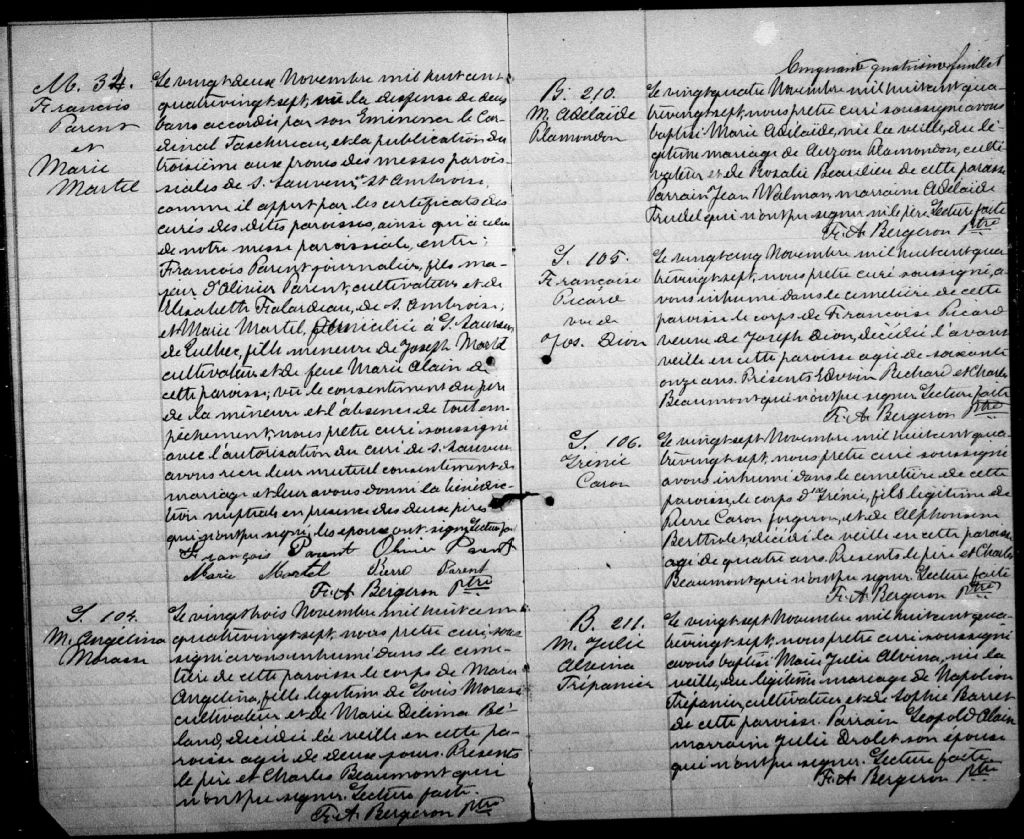 M. 34.
François
Parent
et
Marie
Martel
Le vingt deux Novembre mil huit cent
quatrevingt sept, vu la dispense de deux
bans accordée par son Eminence le Car-
dinal Taschereau, et la publication du
troisième aux prones des messes parois-
siales de S. Sauveur, et St Ambroise,
comme il appert par les certificats des
curés des dites paroisses, ainsi qu'à celui
de notre messe paroissiale, entre;
François Parent journalier, fils ma-
jeur d'Olivier Parent, cultivateur et de
Elisabeth Falardeau, de S. Ambroise,
et Marie Martel, domiciliée à S. Sauveur
de Québec, fille mineure de Joseph Martel
cultivateur et de feue Marie Alain de
cette paroisse; vu le consentement du père
de la mineure et l'absence de tout em-
pêchement, nous prêtre curé soussigné
avec l'autorisation du curé de S. Sauveur
avons reçu leur mutuel consentement de
mariage et leur avons donné la bénédic-
tion nuptiale en présence des deux pères
qui n'ont pu signé, les époux ont signé. Lecture faite
François Parent Olivier Parent
Marie Martel Pierre Parent
F. A. Bergeron Ptre
S. 104.
M. Angélina
Morasse
Le vingt trois Novembre mil huit cent
quatrevingt sept, nous prêtre curé, sous
signé avons inhumé dans le cime-
tière de cette paroisse le corps de Marie
Angelina, fille légitime de Louis Morasse
cultivateur et de Marie Delima Bé-
land, décédée la veille en cette pa-
roisse agée de deux jours. Présents
le père et Charles Beaumont qui
n'ont pu signer. Lecture faite.
F. A. Bergeron Ptre
Cinquante quatrième feuillet
B. 210.
M. Adelaïde
Plamondon
Le vingt quatre Novembre mil huit cent qua-
trevingt sept, nous prêtre curé soussigné avons
baptisé Marie Adelaïde, née la veille, du lé-
gitime mariage de Plamondon, culti-
vateur et de Rosalie Beaulieu de cette paroisse
Parrain Jean Walman, marraine Adelaïde
Trudel qui n'ont pu signer ni le père. Lecture faite
F. A. Bergeron Ptre
S. 105.
Françoise
Picard
vve de
Jos. Dion
Le vingt cinq Novembre mil huit cent qua-
trevingt sept, nous prêtre curé soussigné, a-
vons inhumé dans le cimetière de cette
paroisse le corps de Françoise Picard
veuve de Joseph Dion, décédée l'avant
veille en cette paroisse agée de soixante
onze ans. Présents Edwin Richard et Charles
Beaumont qui n'ont pu signer. Lecture faite
F. A. Bergeron Ptre
S. 106.
Irénée
Caron
Le vingt sept Novembre mil huit cent qua-
trevingt sept, nous prêtre curé soussigné
avons inhumé dans le cimetière de cette
paroisse, le corps d'Irénée, fils légitime de
Pierre Caron forgeron, et de Alphonsine
Berthiole décédé la veille en cette paroisse
agé de quatre ans. Présents le père et Charles
Beaumont qui n'ont pu signer. Lecture faite
F. A. Bergeron Ptre
B. 211.
M. Julie
Alvina
Trépanier
Le vingt sept Novembre mil huit cent qua-
trevingt sept, nous prêtre curé soussigné
avons baptisé Marie Julie Alvina, née la
veille, du légitime mariage de Napoléon
Trépanier, cultivateur et de Sophie Barret
de cette paroisse. Parrain Léopold Alain
marraine Julie Drolet son épouse
qui n'ont pu signer. Lecture faite
F. A. Bergeron Ptre